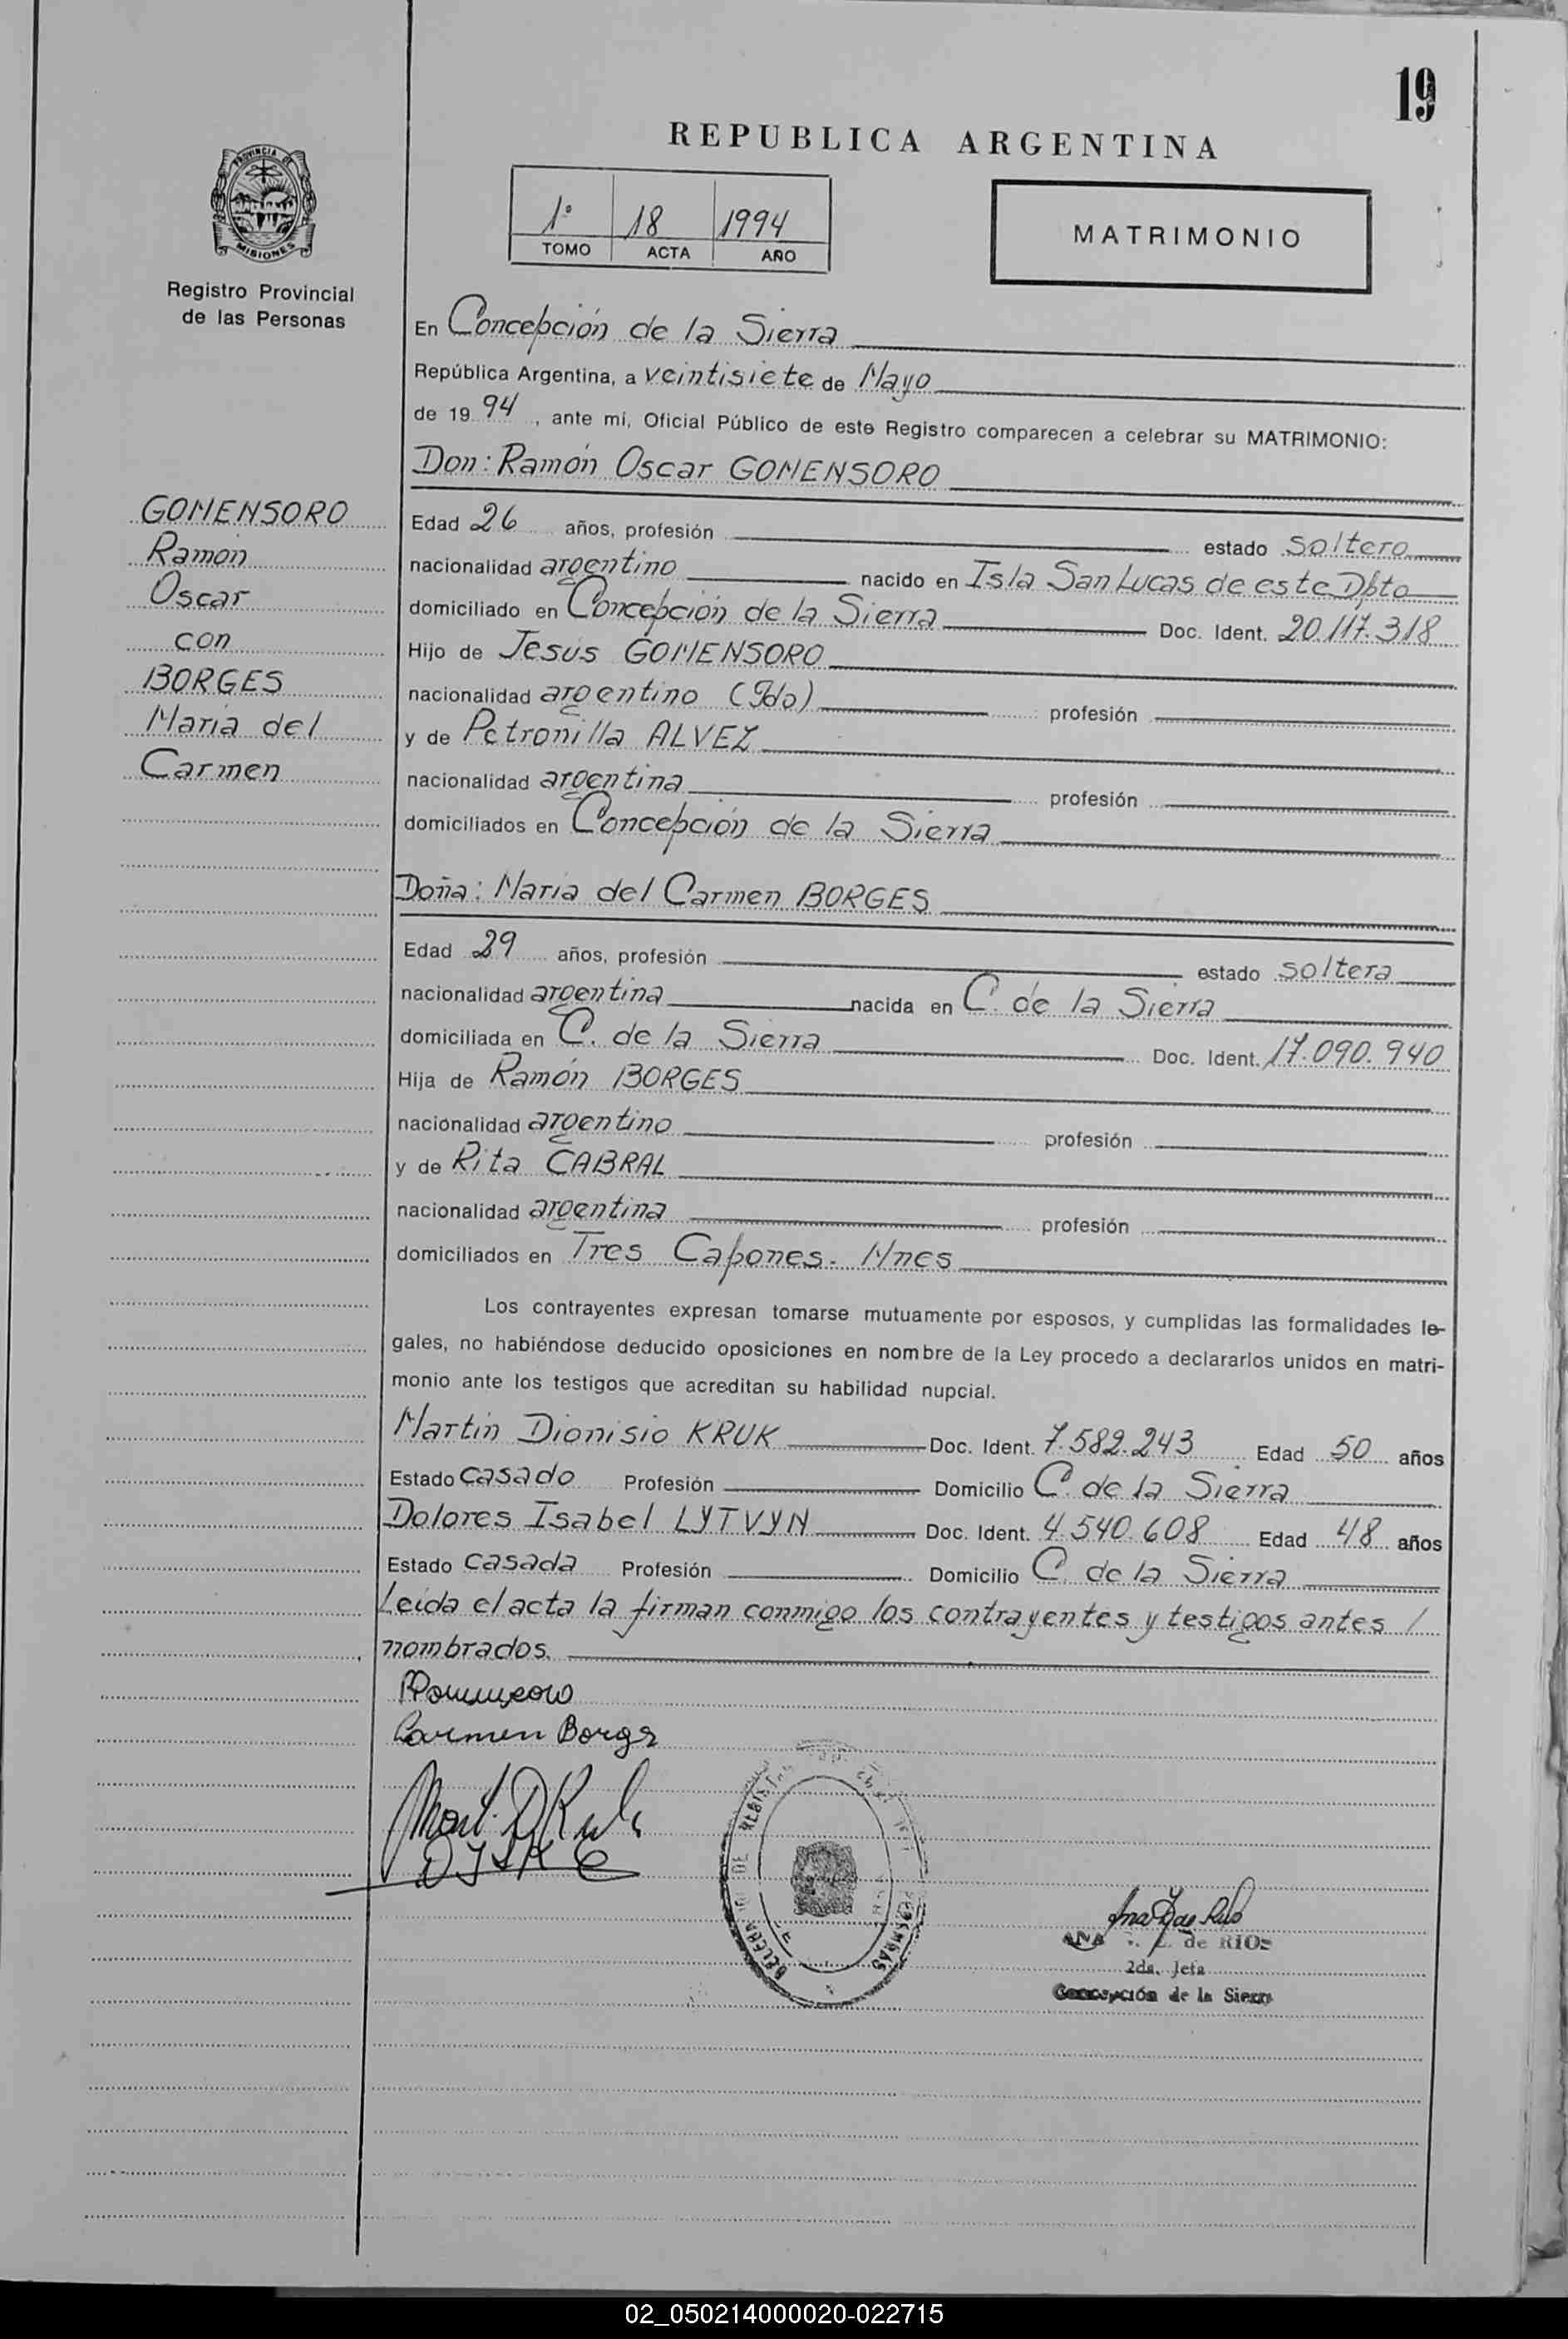 19
REPUBLICA ARGENTINA
PROVINCIA DE
MISIONES
Registro Provincial
de las Personas
1º 18 1994
TOMO ACTA AÑO
MATRIMONIO
En Concepción de la Sierra
República Argentina, a veintisiete de Mayo
de 19 94, ante mí, Oficial Público de este Registro comparecen a celebrar su MATRIMONIO:
Don: Ramón Oscar GOMENSORO
GOMENSORO
Ramón
Oscar
con
BORGES
María del
Carmen
Edad 26 años, profesión estado soltero
nacionalidad argentino nacido en Isla San Lucas de este Dpto
domiciliado en Concepción de la Sierra Doc. Ident. 20.117.318
Hijo de Jesús GOMENSORO
nacionalidad argentino profesión
y de Petronilla ALVEZ
nacionalidad argentina profesión
domiciliados en Concepción de la Sierra
Doña: María del Carmen BORGES
Edad 29 años, profesión estado soltera
nacionalidad argentina nacida en C. de la Sierra
domiciliada en C. de la Sierra Doc. Ident. 17.090.940
Hija de Ramón BORGES
nacionalidad argentino profesión
y de Rita CABRAL
nacionalidad argentina profesión
domiciliados en Tres Capones. Mnes
Los contrayentes expresan tomarse mutuamente por esposos, y cumplidas las formalidades le-
gales, no habiéndose deducido oposiciones en nombre de la Ley procedo a declararlos unidos en matri-
monio ante los testigos que acreditan su habilidad nupcial.
Martín Dionisio KRUK Doc. Ident. 7.582.243 Edad 50 años
Estado casado Profesión Domicilio C. de la Sierra
Dolores Isabel LYTVYN Doc. Ident. 4.540.608 Edad 48 años
Estado casada Profesión Domicilio C. de la Sierra
Leída el acta la firman conmigo los contrayentes y testigos antes /
nombrados.
Carmen Borges
ANA de RIOS
2da. Jefa
Concepción de la Sierra
02_050214000020-022715